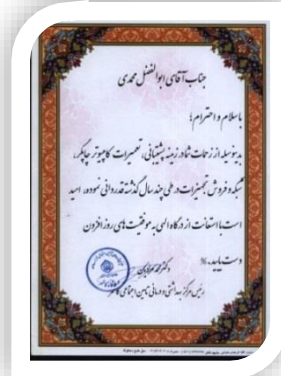 جناب آقای ابوالفضل محمدی
باسلام و احترام؛
بدینوسیله از زحمات شما در زمینه پشتیبانی، تعمیرات کامپیوتر چاپگر،
شبکه و فروش تجهیزات در طی چند سال گذشته قدردانی نموده، امید
است با استعانت از درگاه الهی به موفقیت های روز افزون
دست یابید.٪
دکتر
رئیس مرکز بهداشتی و درمانی تامین اجتماعی